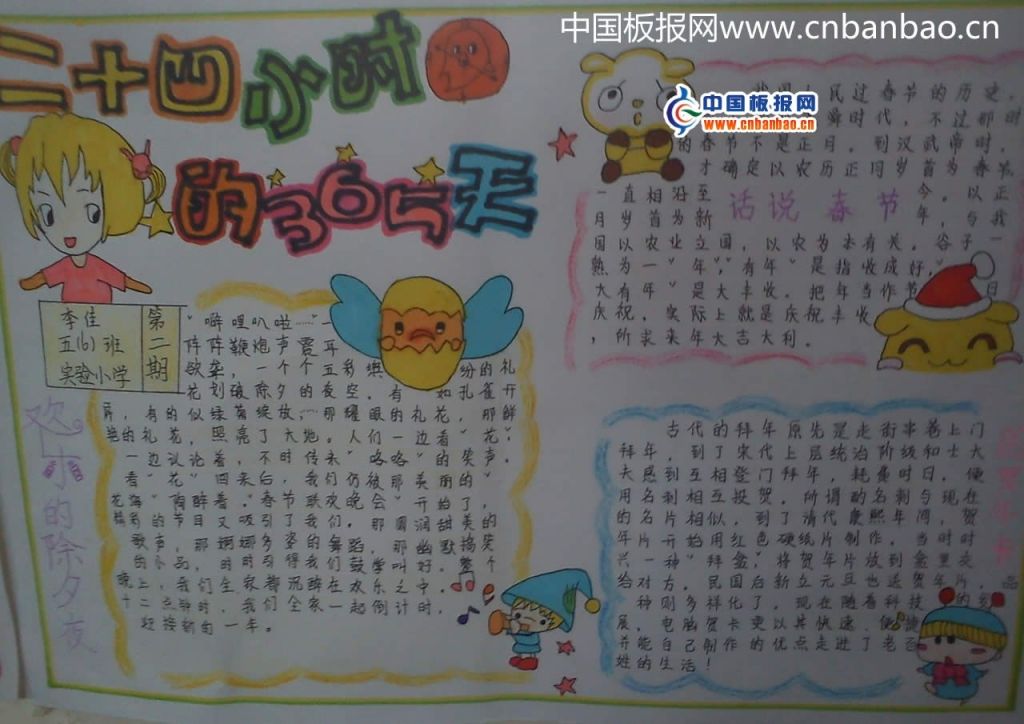 中国板报网www.cnbanbao.cn
二十四小时
的365天
中国板报网
www.cnbanbao.cn
李佳
五(6)班
实验小学
第二期
欢乐的除夕夜
"噼哩叭啦……"一
阵阵鞭炮声震耳
欲聋，一个个五彩缤纷的礼
花划破除夕的夜空。有如孔雀开
屏，有的似绿菊绽放，…那耀眼的礼花，那鲜
艳的礼花，照亮了大地。人们一边看"花"，
一边议论着，不时传来"咯咯"的笑声。
看"花"回来后，我们仍被那美丽的"
花海"陶醉着。"春节联欢晚会"开始了，
精彩的节目又吸引了我们。那圆润甜美的
歌声，那婀娜多姿的舞蹈，那幽默搞笑
的小品，时时引得我们鼓掌叫好。整个
晚上，我们全家都沉醉在欢乐之中。
十二点钟时，我们全家一起倒计时，
迎接新的一年。
话说春节
民过春节的历史。
舜时代，不过那时
的春节不是正月。到汉武帝时，
才确定以农历正月岁首为春节，
一直相沿至今。以正
月岁首为新年，与我
国以农业立国，以农为本有关。谷子一
熟为一"年"，"有年"是指收成好，"
大有年"是大丰收。把年当作节日
庆祝，实际上就是庆祝丰收
，所求来年大吉大利。
古代的拜年原先是走街串巷上门
拜年，到了宋代上层统治阶级和士大
夫感到互相登门拜年，耗费时日，便
用名刺相互投贺。所谓的名刺与现在
的名片相似，到了清代康熙年间，贺
年片开始用红色硬纸片制作。当时时
兴一种"拜盒"，将贺年片放到盒里交
给对方。民国后新立元旦也送贺年片，品
种则多样化了，现在随着科技的发
展，电脑贺卡更以其快速、便捷
并能自己制作的优点走进了老百
姓的生活！